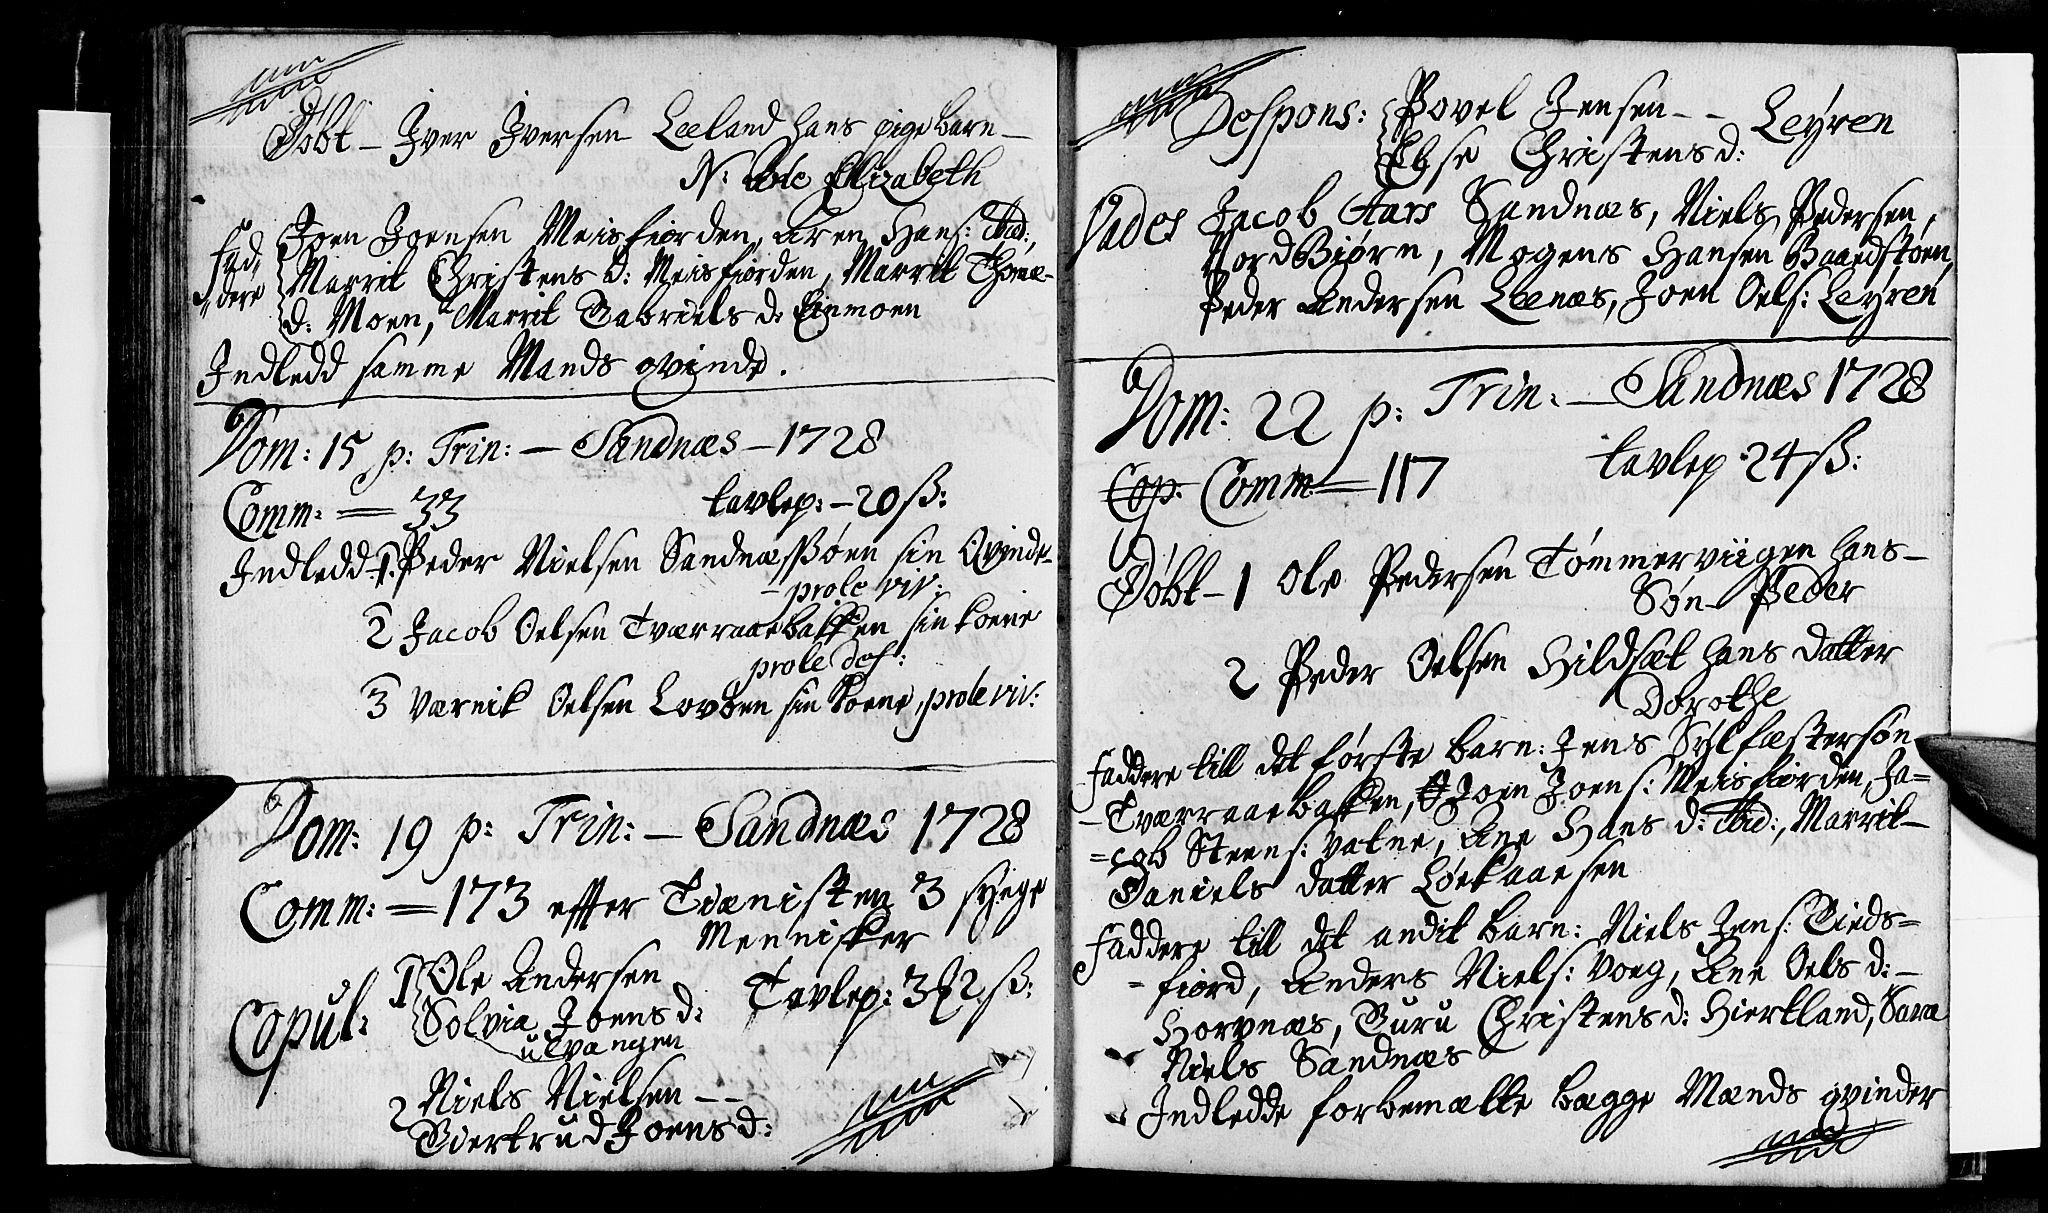 Døbt – Iver Iversen Leeland hans pige barn –
N: Elizabeth
Joen Joensen Meisfiorden, Aren Hans: Ibid:,
Fad,
Marrit Christens d: Meisfiorden, Marrit Thomæ-
dere
d: Moen, Marrit Gabriels d: Einmoen
Indledd samme Mands qvinde.
Dom: 15 p: Trin: – Sandnæs – 1728
Comm: = 33 tavlep: – 20 ß:
Indledd 1. Peder Nielsen Sandnæssøen sin Qvinde
– prole viv:
2 Jacob Oelsen Tværraaebakken sin koene
prole def:
3 Værnik Oelsen Lovoen sin koene, prole viv:
Dom: 19 p: Trin: – Sandnæs 1728
Comm: = 173 effter Tiænisten 3 syege
Mennisker
1 Ole Andersen Tavlep: 3 ß:
Copul: Solvia Joens d:
ulvangen
2 Niels Nielsen – –
Giertrud Joens d:
Despons: Povel Jensen – – Leyren
Else Christens d:
Vades Jacob Aars Sandnæs, Niels Pedersen,
NordBiørn, Mogens Hansen Baardstøen,
Peder Andersen Leenæs, Joen Oels: Leyren
Dom: 22 p: Trin: – Sandnæs 1728
Cop. Comm: = 117 tavlep 24 ß:
Døbt – 1 Ole Pedersen Tømmerviigen hans –
Søn – Peder
2 Peder Oelsen Hildsæt hans datter
Dorothe
Faddere till det første barn: Jens Sylfæstersøn
– Tværraaebakken, Joen Joens: Meisfiorden, Ja=
=cob Steens: Vatne, Ane Hans d: Ibid:, Marrit –
Daniels datter Løekaaesen
Faddere till det andit barn: Niels Jens: Tieds=
= fiord, Anders Niels: Voeg, Ane Oels d: –
Horvnæs, Guru Christens d: Hiertland, Sara
Niels Sandnæs
Indledde forbemælte begge Mænds qvinder